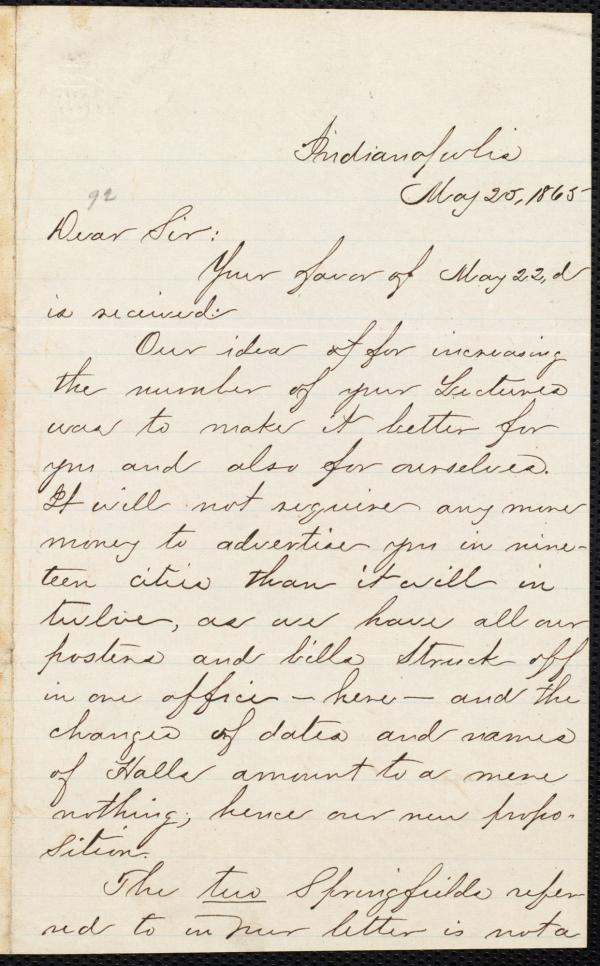 Indianapolis
May 25, 1865
92
Dear Sir:
Your favor of May 22,d
is received:
Our idea of for increasing
the number of your Lectures
was to make it better for
you and also for ourselves.
It will not require any more
money to advertise you in nine-
teen cities than it will in
twelve, as we have all our
posters and bills struck off
in one office — here — and the
changes of dates and names
of Halls amount to a mere
nothing; hence our new propo-
sition.
The two Springfields refer-
red to in our letter is not a